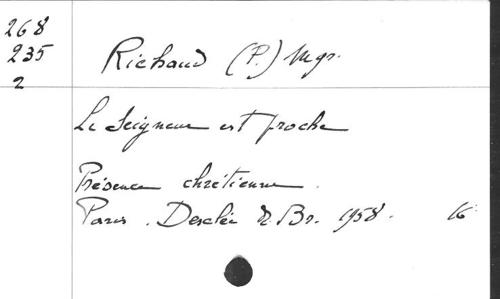 268
235
2
Richaud (P.) Mgr.
Le Seigneur est proche
Présence chrétienne.
Paris. Desclée de Br. 1958. 16